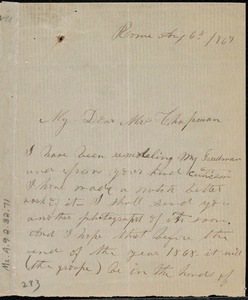 Rome Aug 6th 1867
My Dear Mrs Chapman
I have been remodeling my Freedman
and upon your kind criticism
I have made a much better
work of it I shall send you
another photograph of it soon.
And I hope that before the
end of the year 1868 it will
(the groupe) be in the hands of
Ms. A. 9. 2. 32. 71
283